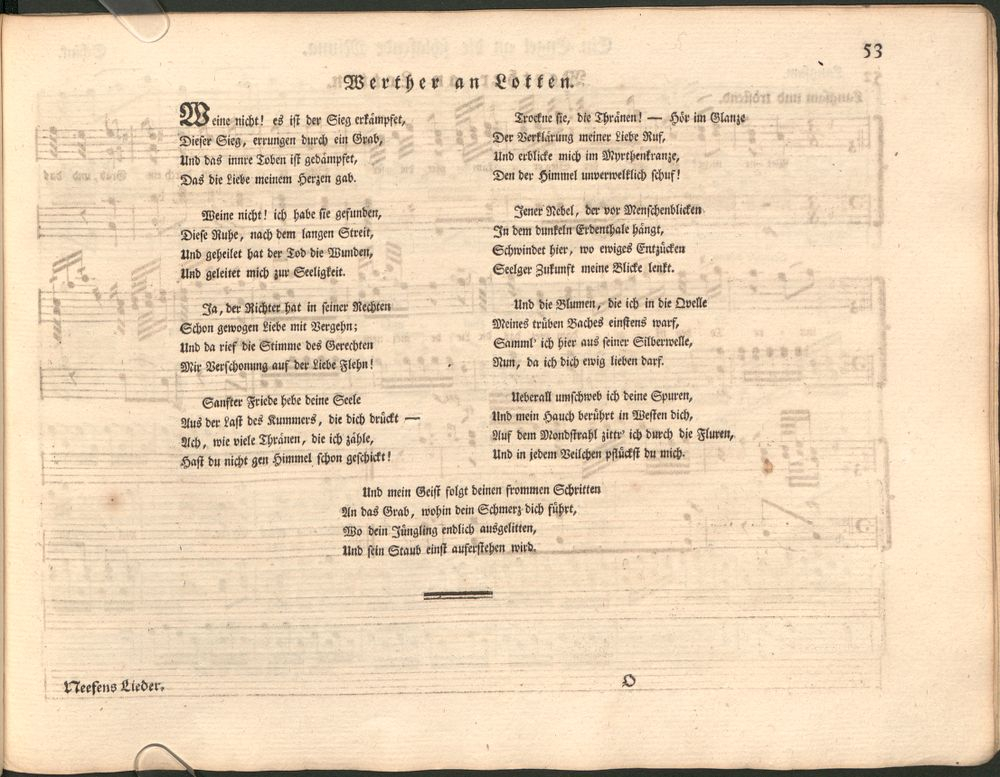 53
Werther an Lotten.
Weine nicht! es ist der Sieg erkämpfet,
Dieser Sieg, errungen durch ein Grab,
Und das innre Toben ist gedämpfet,
Das die Liebe meinem Herzen gab.
Weine nicht! ich habe sie gefunden,
Diese Ruhe, nach dem langen Streit,
Und geheilet hat der Tod die Wunden,
Und geleitet mich zur Seeligkeit.
Ja, der Richter hat in seiner Rechten
Schon gewogen Liebe mit Vergehn;
Und da rief die Stimme des Gerechten
Mir Verschonung auf der Liebe Flehn!
Sanfter Friede hebe deine Seele
Aus der Last des Kummers, die dich drückt —
Ach, wie viele Thränen, die ich zähle,
Hast du nicht gen Himmel schon geschickt!
Trockne sie, die Thränen! — Hör im Glanze
Der Verklärung meiner Liebe Ruf,
Und erblicke mich im Myrthenkranze,
Den der Himmel unverwelklich schuf!
Jener Nebel, der vor Menschenblicken
In dem dunkeln Erdenthale hängt,
Schwindet hier, wo ewiges Entzücken
Seelger Zukunft meine Blicke lenkt.
Und die Blumen, die ich in die Qvelle
Meines trüben Baches einstens warf,
Samml' ich hier aus seiner Silberwelle,
Nun, da ich dich ewig lieben darf.
Ueberall umschweb ich deine Spuren,
Und mein Hauch berührt in Westen dich,
Auf dem Mondstrahl zittr' ich durch die Fluren,
Und in jedem Veilchen pflückst du mich.
Und mein Geist folgt deinen frommen Schritten
An das Grab, wohin dein Schmerz dich führt,
Wo dein Jüngling endlich ausgelitten,
Und sein Staub einst auferstehen wird.
Neefens Lieder.
O